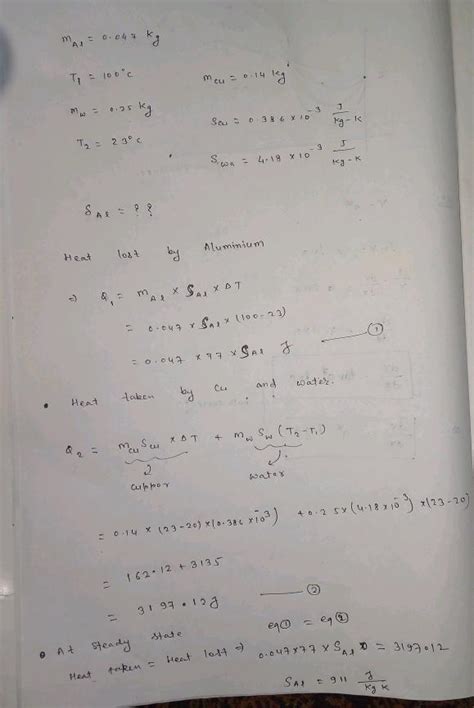 m_Al = 0.047 kg
T₁ = 100°C
m_cu = 0.14 kg
m_w = 0.25 kg
S_cu = 0.386 × 10⁻³ J/kg-K
T₂ = 23°C
S_wa = 4.18 × 10⁻³ J/kg-K
S_Al = ??
Heat lost by Aluminium
⇒ Q₁ = m_Al × S_Al × ΔT
= 0.047 × S_Al × (100-23)
= 0.047 × 77 × S_Al J ①
• Heat taken by cu and water.
Q₂ = m_cu S_cu × ΔT + m_w S_w (T₂-T₁)
cuppor water
= 0.14 × (23-20) × (0.386 × 10⁻³) + 0.25 × (4.18 × 10⁻³) × (23-20)
= 162.12 + 3135
= 3197.12 J ②
• At steady state eq① = eq②
Heat taken = Heat lost ⇒ 0.047×77×S_Al = 3197.12
S_Al = 911 J/kg K